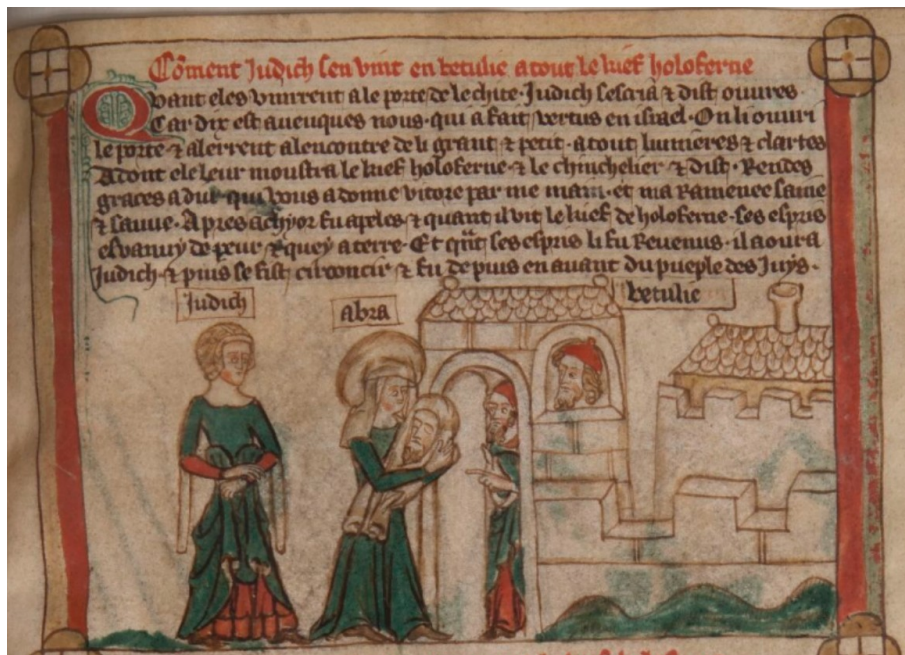 Cōment Judich sen vint en betulie a tout le kief holoferne
Quant eles vinrent a le porte de le chite · Judich sescria ⁊ dist ouures ·
Car dix est aueuques nous · qui a fait vertus en israel · On li ouuri
le porte ⁊ alerrent alencontre de li grant ⁊ petit · a tout lumieres ⁊ clartes
Adont ele leur moustra le kief holoferne ⁊ le chinchelier ⁊ dist · Rendes
graces a qui vous a donne vitore par me main · et ma Ramenee saine
⁊ sauue · Apres achyor fu apeles ⁊ quant il vit le kief de holoferne · ses espris
esvanuy de peur ⁊ quey a terre · Et qñt ses espris li fu Reuenus · il aoura
Judich · ⁊ puis se fist circoncir ⁊ fu de puis en auant du pueple des Juys ·
Judich
Abra
betulie